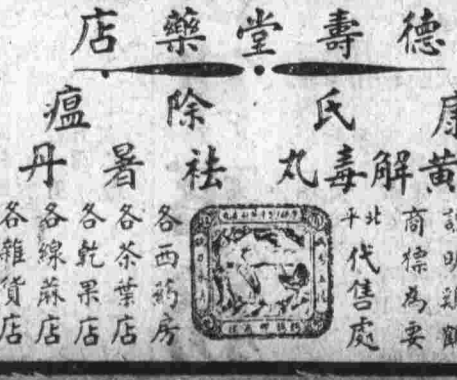 德壽堂藥店
康氏除瘟
黃解毒丸祛暑丹
認明
商標為要
北平代售處
各西葯房
各茶葉店
各乾果店
各線蔴店
各雜貨店